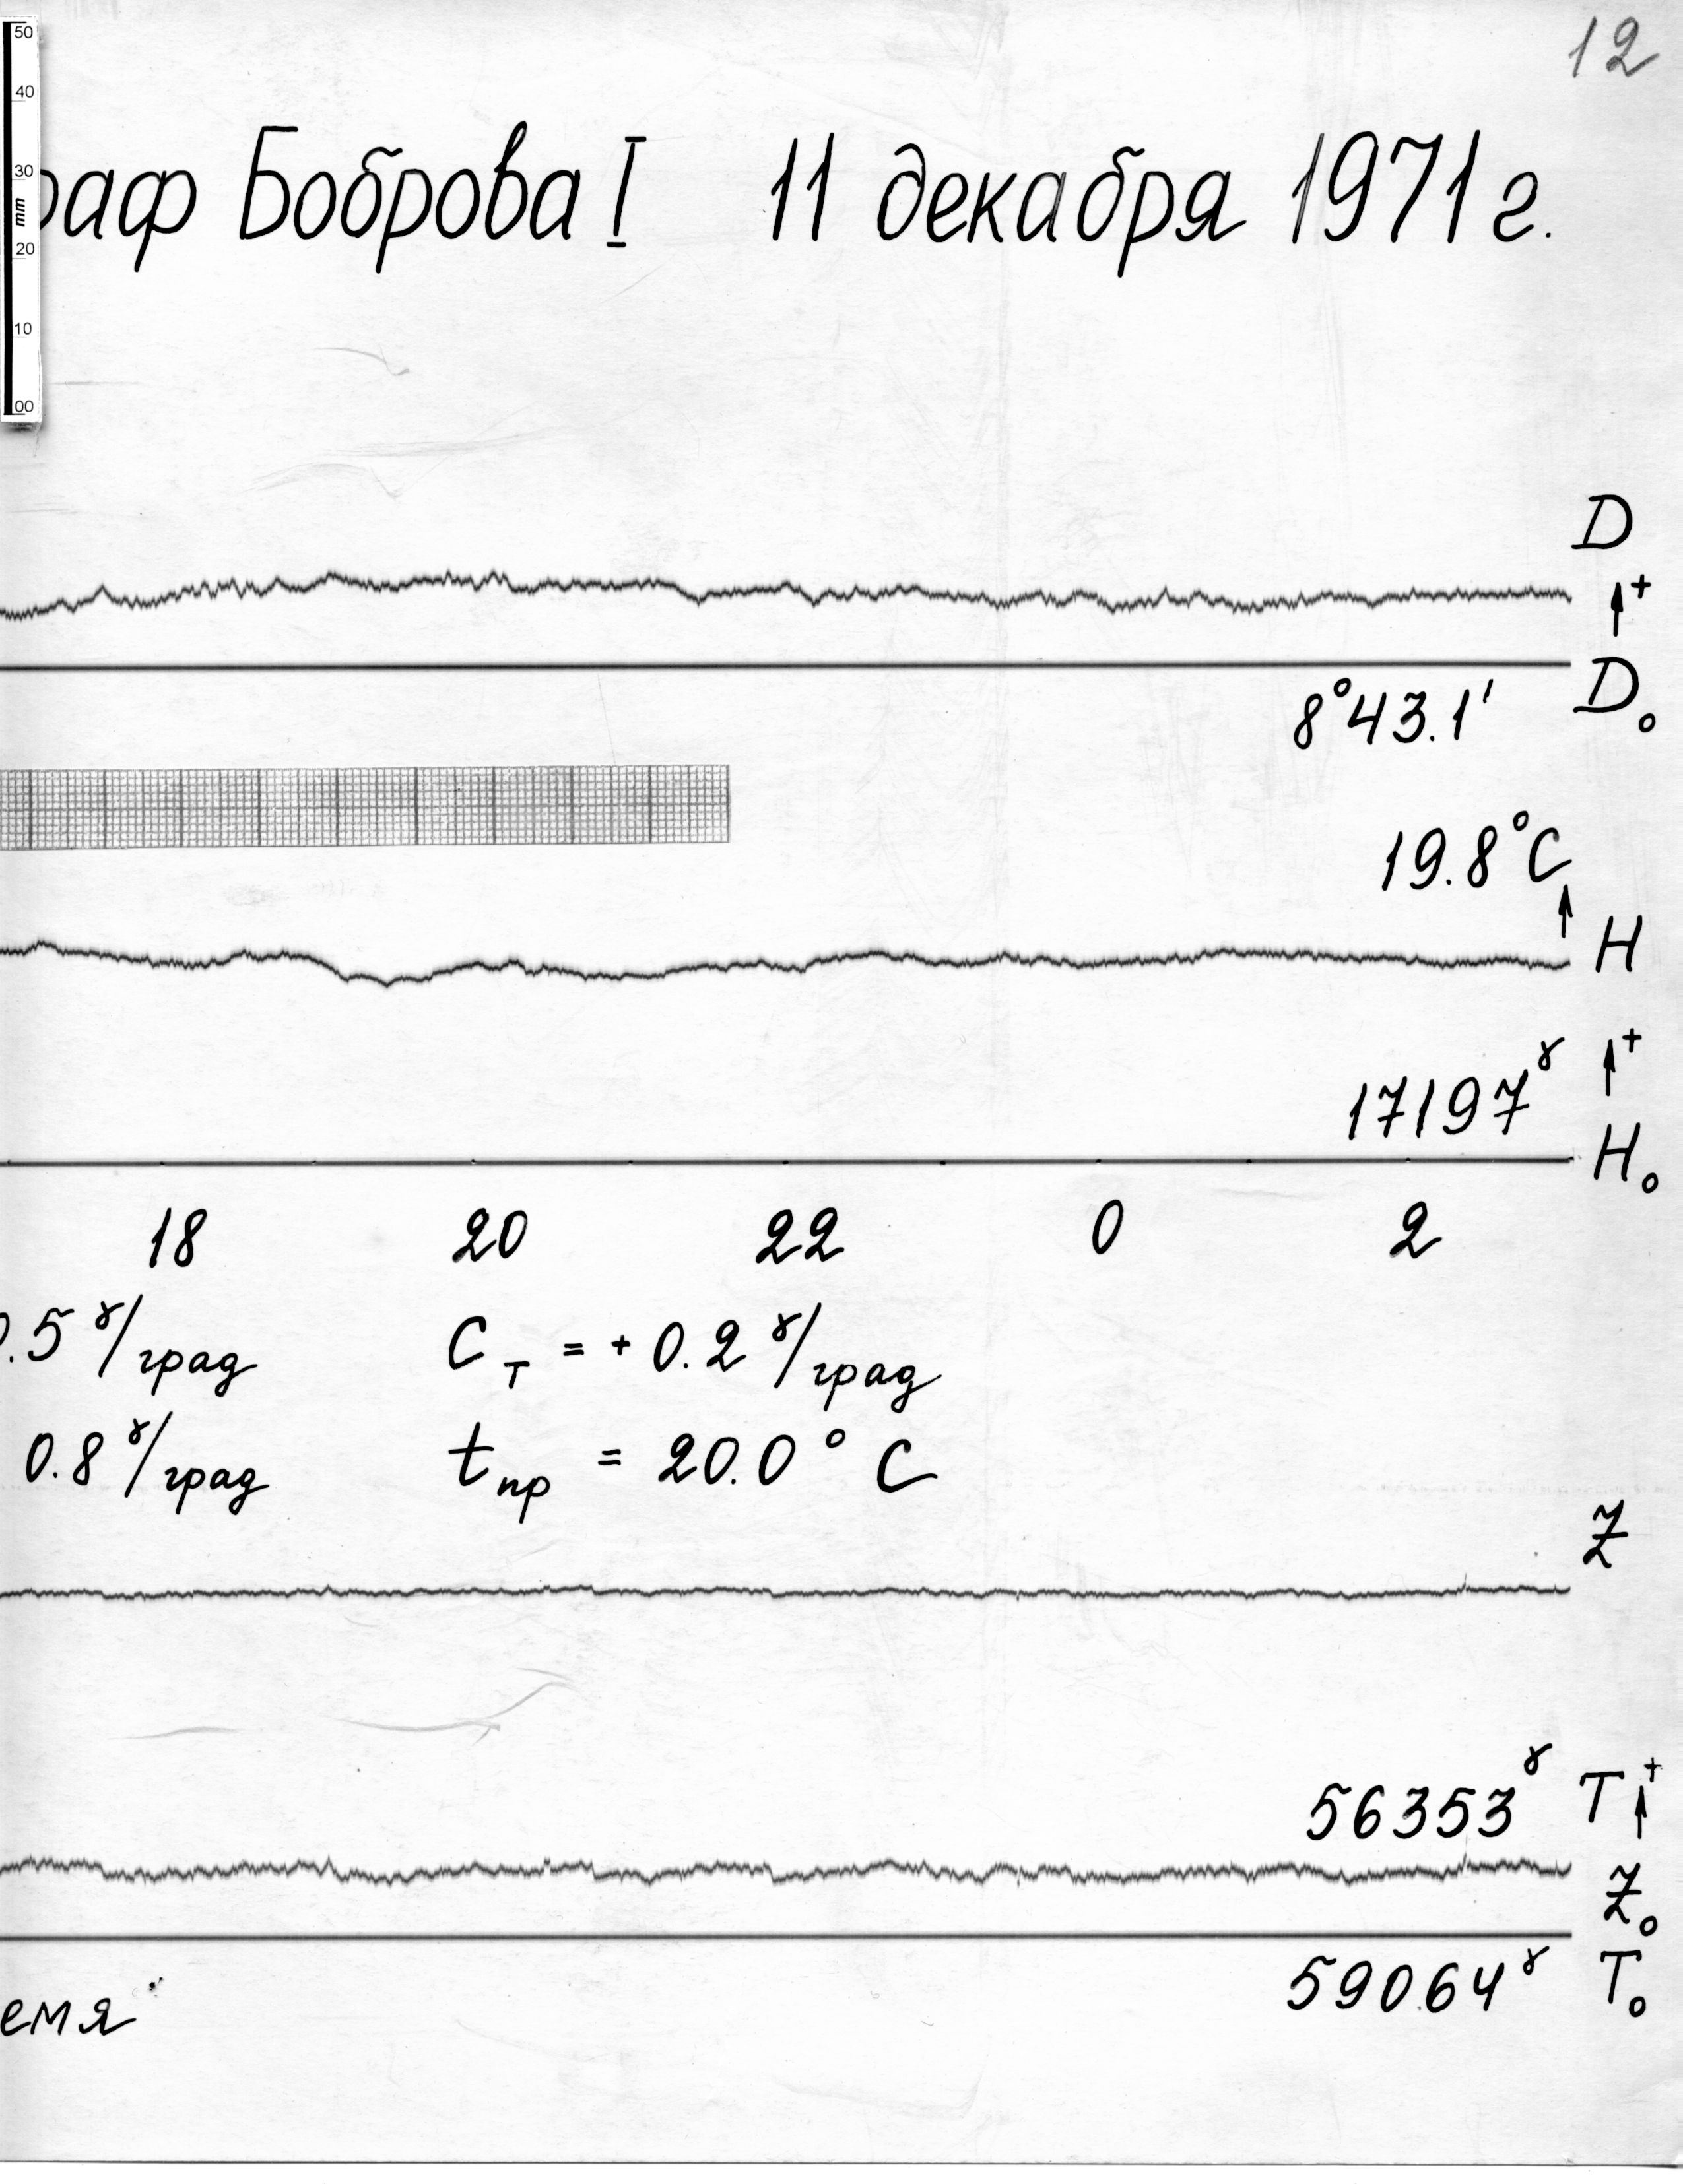 12
50
40
30
mm
20
10
00
раф Боброва I 11 декабря 1971 г.
D
+
8°43.1' D₀
19.8°C
H
+
17197ᵞ H₀
18 20 22 0 2
.5 ᵞ/град Cᴛ = + 0.2 ᵞ/град
0.8 ᵞ/град tпр = 20.0° C
Z
56353ᵞ T +
Z₀
59064ᵞ T₀
емя